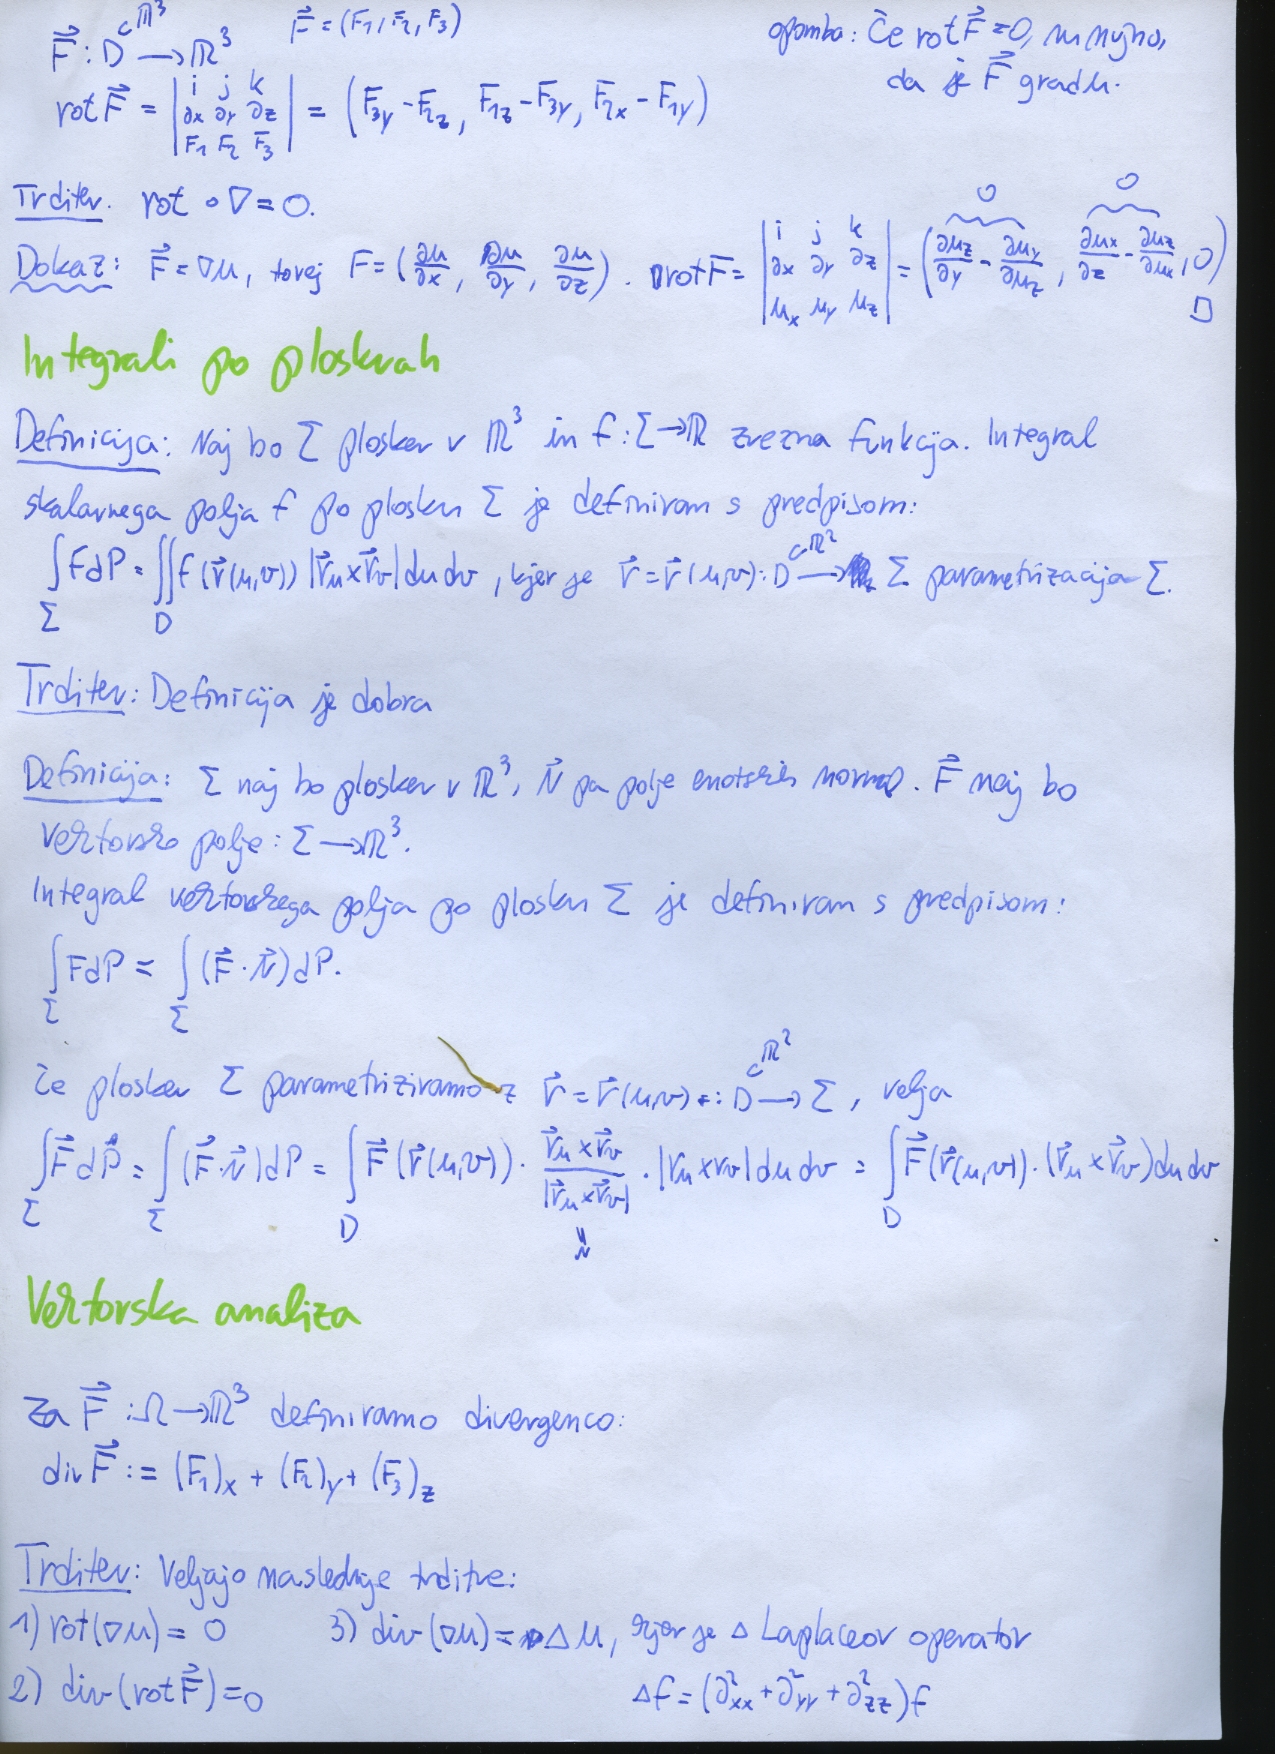 F⃗ : D^{⊂ℝ³} → ℝ³   F⃗ = (F₁, F₂, F₃)   opomba: Če rot F⃗ = 0, ni nujno,
da je F⃗ gradu.
rot F⃗ = | i j k ; ∂x ∂y ∂z ; F₁ F₂ F₃ | = (F₃y − F₂z, F₁z − F₃y, F₂x − F₁y)
Trditev. rot ∘ ∇ = 0.
Dokaz: F⃗ = ∇u, torej F = (∂u/∂x, ∂u/∂y, ∂u/∂z). rot F = | i j k ; ∂x ∂y ∂z ; u_x u_y u_z | = (∂u_z/∂y − ∂u_y/∂u_z, ∂u_x/∂z − ∂u_z/∂u_x, 0)
0 0
□
Integrali po ploskvah
Definicija: Naj bo Σ ploskev v ℝ³ in f : Σ → ℝ zvezna funkcija. Integral
skalarnega polja f po ploskvi Σ je definiran s predpisom:
∫_Σ F dP = ∬_D f(r⃗(u,v)) |r⃗_u × r⃗_v| du dv, kjer je r⃗ = r⃗(u,v) : D^{⊂ℝ²} → Σ parametrizacija Σ.
Trditev: Definicija je dobra
Definicija: Σ naj bo ploskev v ℝ³, N⃗ pa polje enotskih normal. F⃗ naj bo
vektorsko polje : Σ → ℝ³.
Integral vektorskega polja po ploskvi Σ je definiran s predpisom:
∫_Σ F dP = ∫_Σ (F⃗ · N⃗) dP.
Če ploskev Σ parametriziramo z r⃗ = r⃗(u,v) : D^{⊂ℝ²} → Σ, velja
∫_Σ F⃗ dP⃗ = ∫_Σ (F⃗ · N⃗) dP = ∫_D F⃗(r⃗(u,v)) · (r⃗_u × r⃗_v)/|r⃗_u × r⃗_v| · |r_u × r_v| du dv = ∫_D F⃗(r⃗(u,v)) · (r⃗_u × r⃗_v) du dv
N⃗
Vektorska analiza
Za F⃗ : Ω → ℝ³ definiramo divergenco:
div F⃗ := (F₁)_x + (F₂)_y + (F₃)_z
Trditev: Veljajo naslednje trditve:
1) rot(∇u) = 0   3) div(∇u) = Δu, kjer je Δ Laplaceov operator
2) div(rot F⃗) = 0   Δf = (∂²_xx + ∂²_yy + ∂²_zz) f